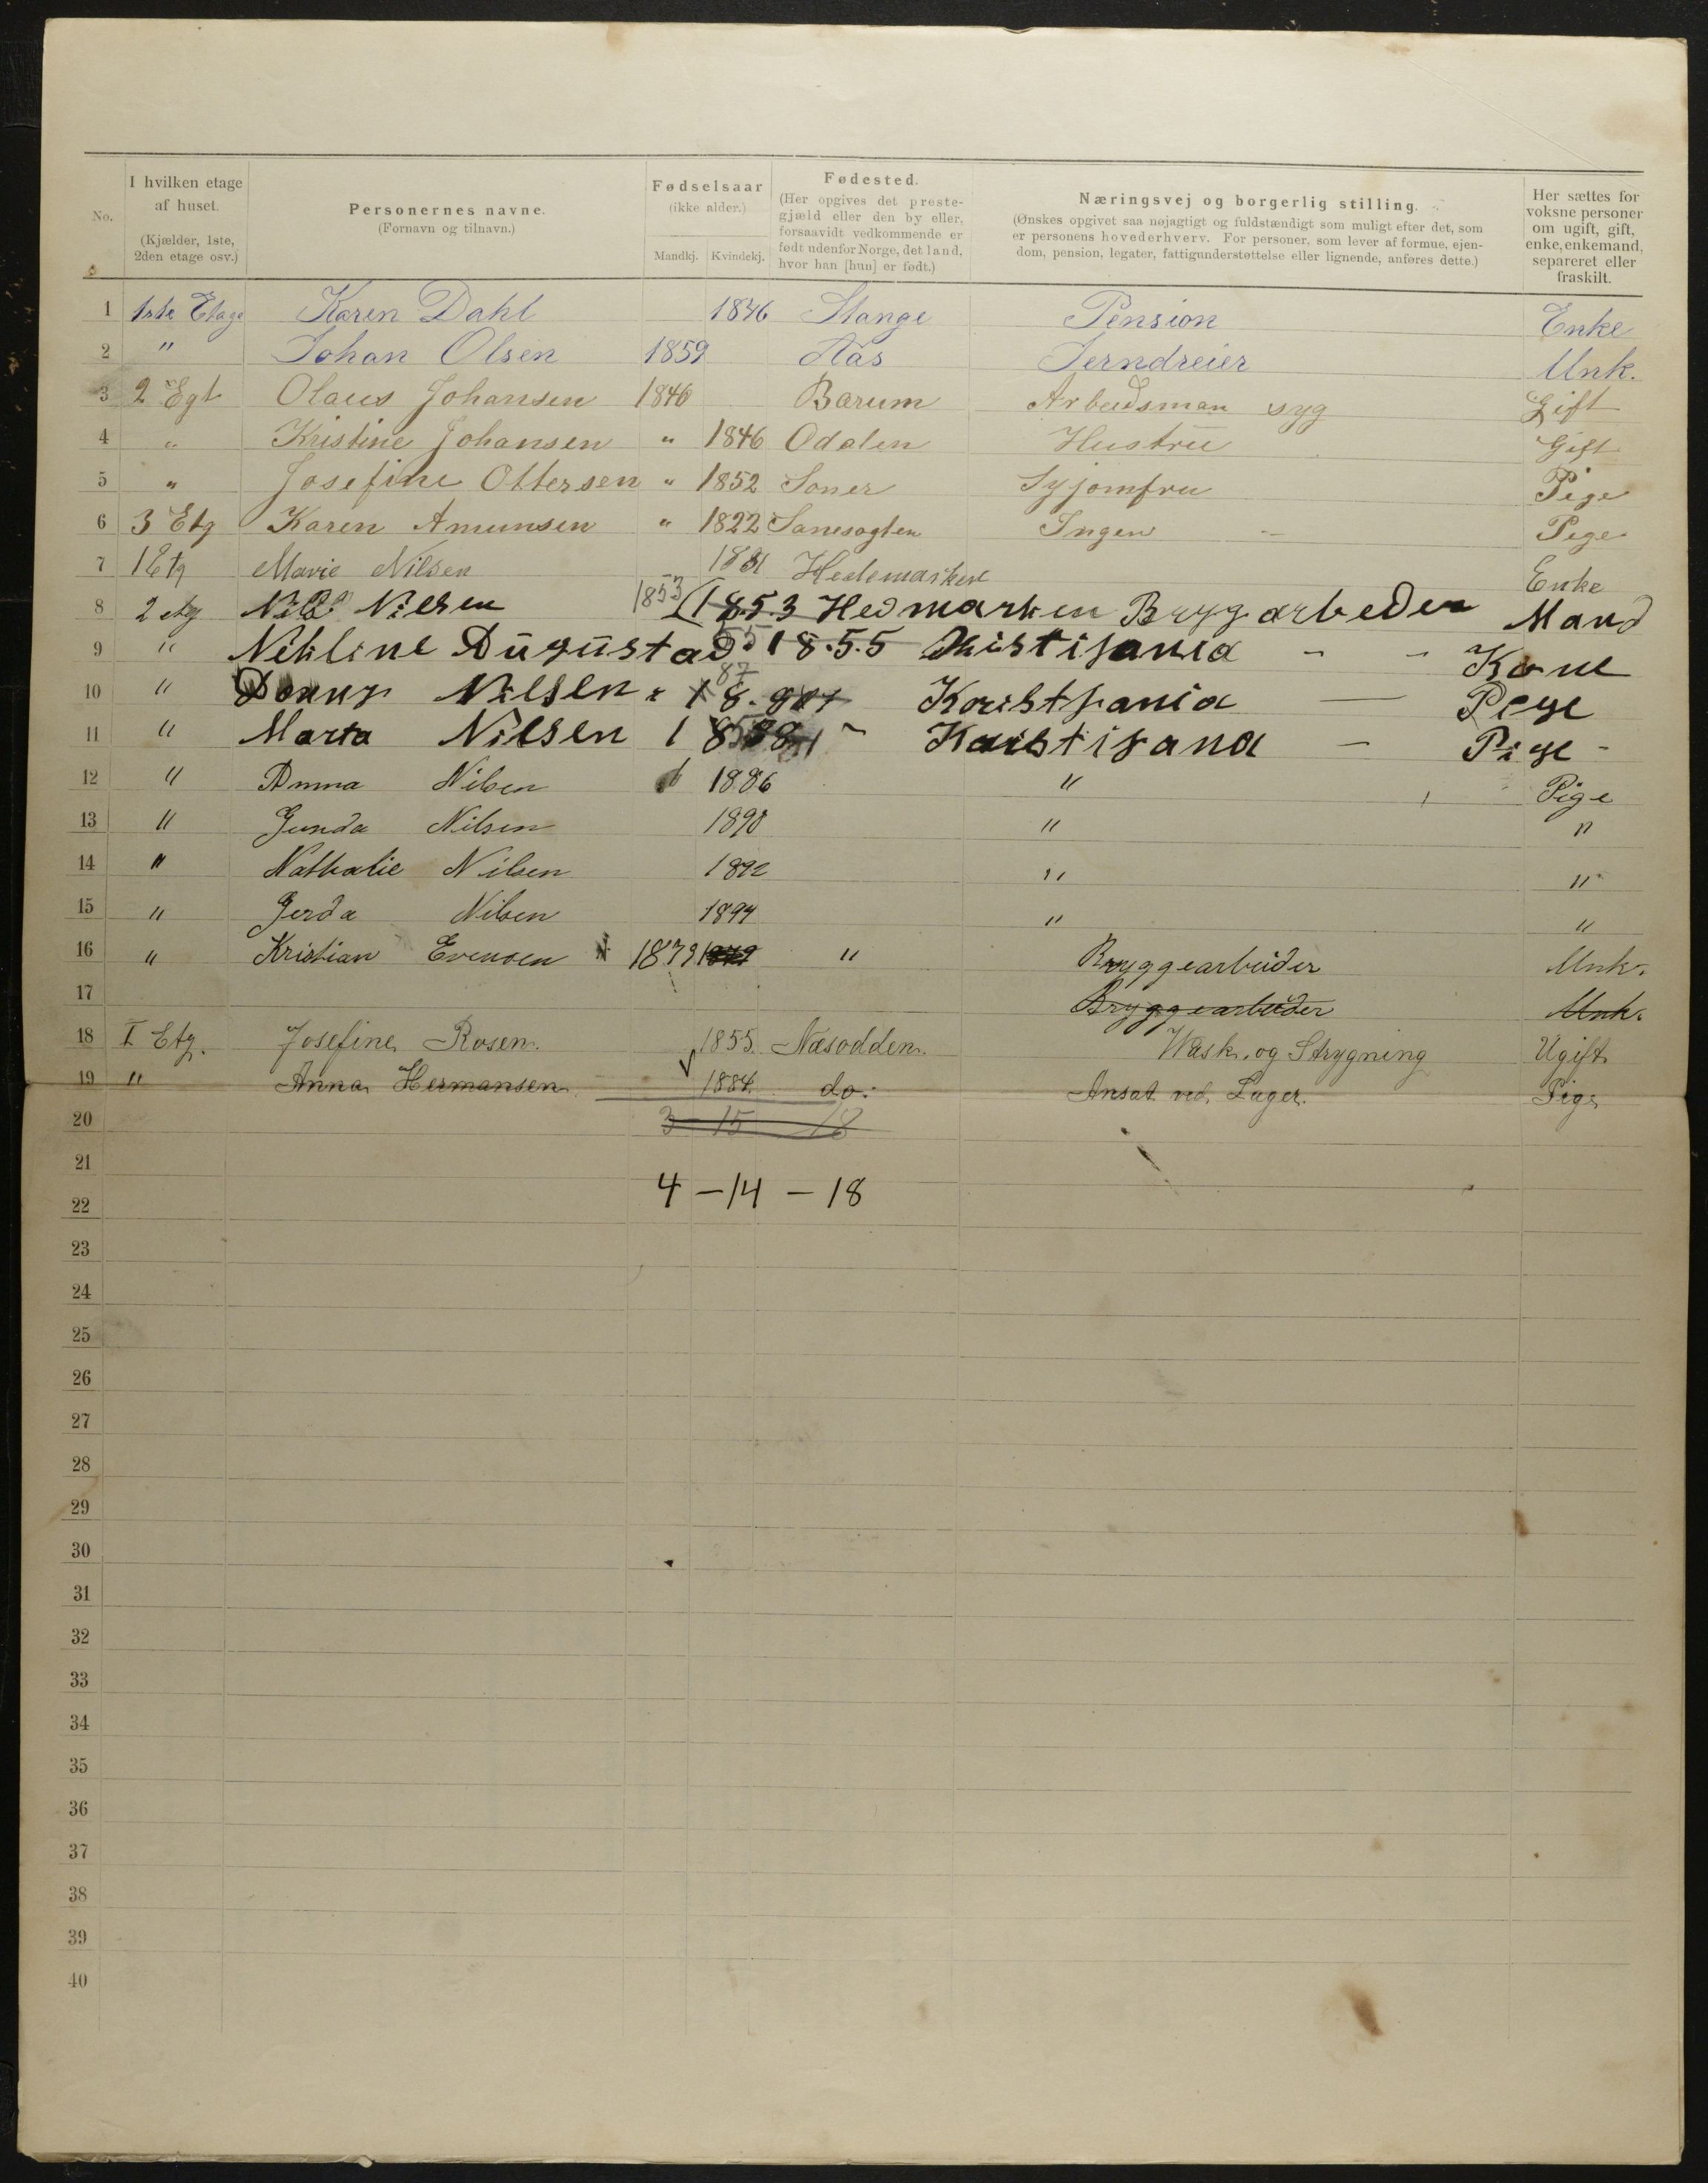 No.
I hvilken etage af huset. (Kjælder, 1ste, 2den etage osv.)
Personernes navne. (Fornavn og tilnavn.)
Fødselsaar (ikke alder.) Mandkj. Kvindekj.
Fødested. (Her opgives det prestegjæld eller den by eller, forsaavidt vedkommende er født udenfor Norge, det land, hvor han [hun] er født.)
Næringsvej og borgerlig stilling. (Ønskes opgivet saa nøjagtigt og fuldstændigt som muligt efter det, som er personens hovederhverv. For personer, som lever af formue, ejendom, pension, legater, fattigunderstøttelse eller lignende, anføres dette.)
Her sættes for voksne personer om ugift, gift, enke, enkemand, separeret eller fraskilt.
1 1ste Etage Karen Dahl 1846 Stange Pension Enke
2 " Johan Olsen 1859 Aas Jerndreier Unk.
3 2 Egt Olaus Johansen 1840 Barum Arbeidsman syg Gift
4 " Kristine Johansen " 1846 Odalen Hustru Gift
5 " Josefine Ottersen " 1852 Soner Syjomfru Pige
6 3 Etg Karen Amunsen " 1822 Ingen - Pige
7 1 Etg Marie Nilsen 1831 Hedemarken Enke
8 2 etg Nils Nilsen 1853 1853 Hedmarken Brygarbeder Mand
9 " 55 18.5.5 - - Kone
10 " Nilsen " 87 Kristiania - Pige
11 " Marta Nilsen - Pige -
12 " Anna Nilsen 1886 " Pige
13 " Gunda Nilsen 1890 " "
14 " Nathalie Nilsen 1892 " "
15 " Gerda Nilsen 1894 " "
16 " Kristian Evensen 1879 " Bryggearbeider Unk.
17 Bryggearbeider Unk.
18 I Etg. Josefine Rosen. 1855. Næsodden. Vask. og Strygning Ugift
19 " Anna Hermansen 1884. do. Ansat ved Lager. Pige
20 3 - 15 18
21
22 4 - 14 - 18
23
24
25
26
27
28
29
30
31
32
33
34
35
36
37
38
39
40